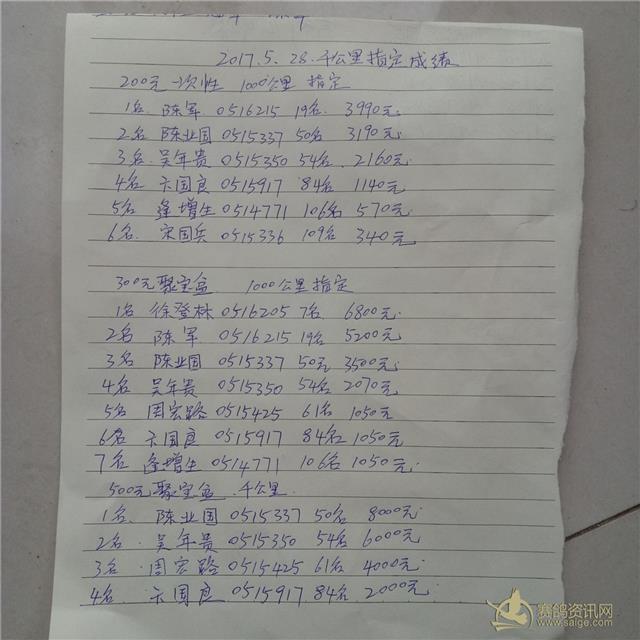 2017.5.28.千公里指定成绩
200元一次性 1000公里 指定
1名 陈军 0516215 19名 3990元
2名 陈业国 0515337 50名 3190元
3名 吴年贵 0515350 54名 2160元
4名 卞国良 0515917 84名 1140元
5名 逄增生 0514771 106名 570元
6名 宋国兵 0515336 109名 340元
300元聚宝盆 1000公里指定
1名 徐登林 0516205 7名 6800元
2名 陈军 0516215 19名 5200元
3名 陈业国 0515337 50元 3500元
4名 吴年贵 0515350 54名 2070元
5名 周宏路 0515425 61名 1050元
6名 卞国良 0515917 84名 1050元
7名 逄增生 0514771 106名 1050元
500元聚宝盆 千公里
1名 陈业国 0515337 50名 8000元
2名 吴年贵 0515350 54名 6000元
3名 周宏路 0515425 61名 4000元
4名 卞国良 0515917 84名 2000元
赛鸽资讯网
www.saige.com